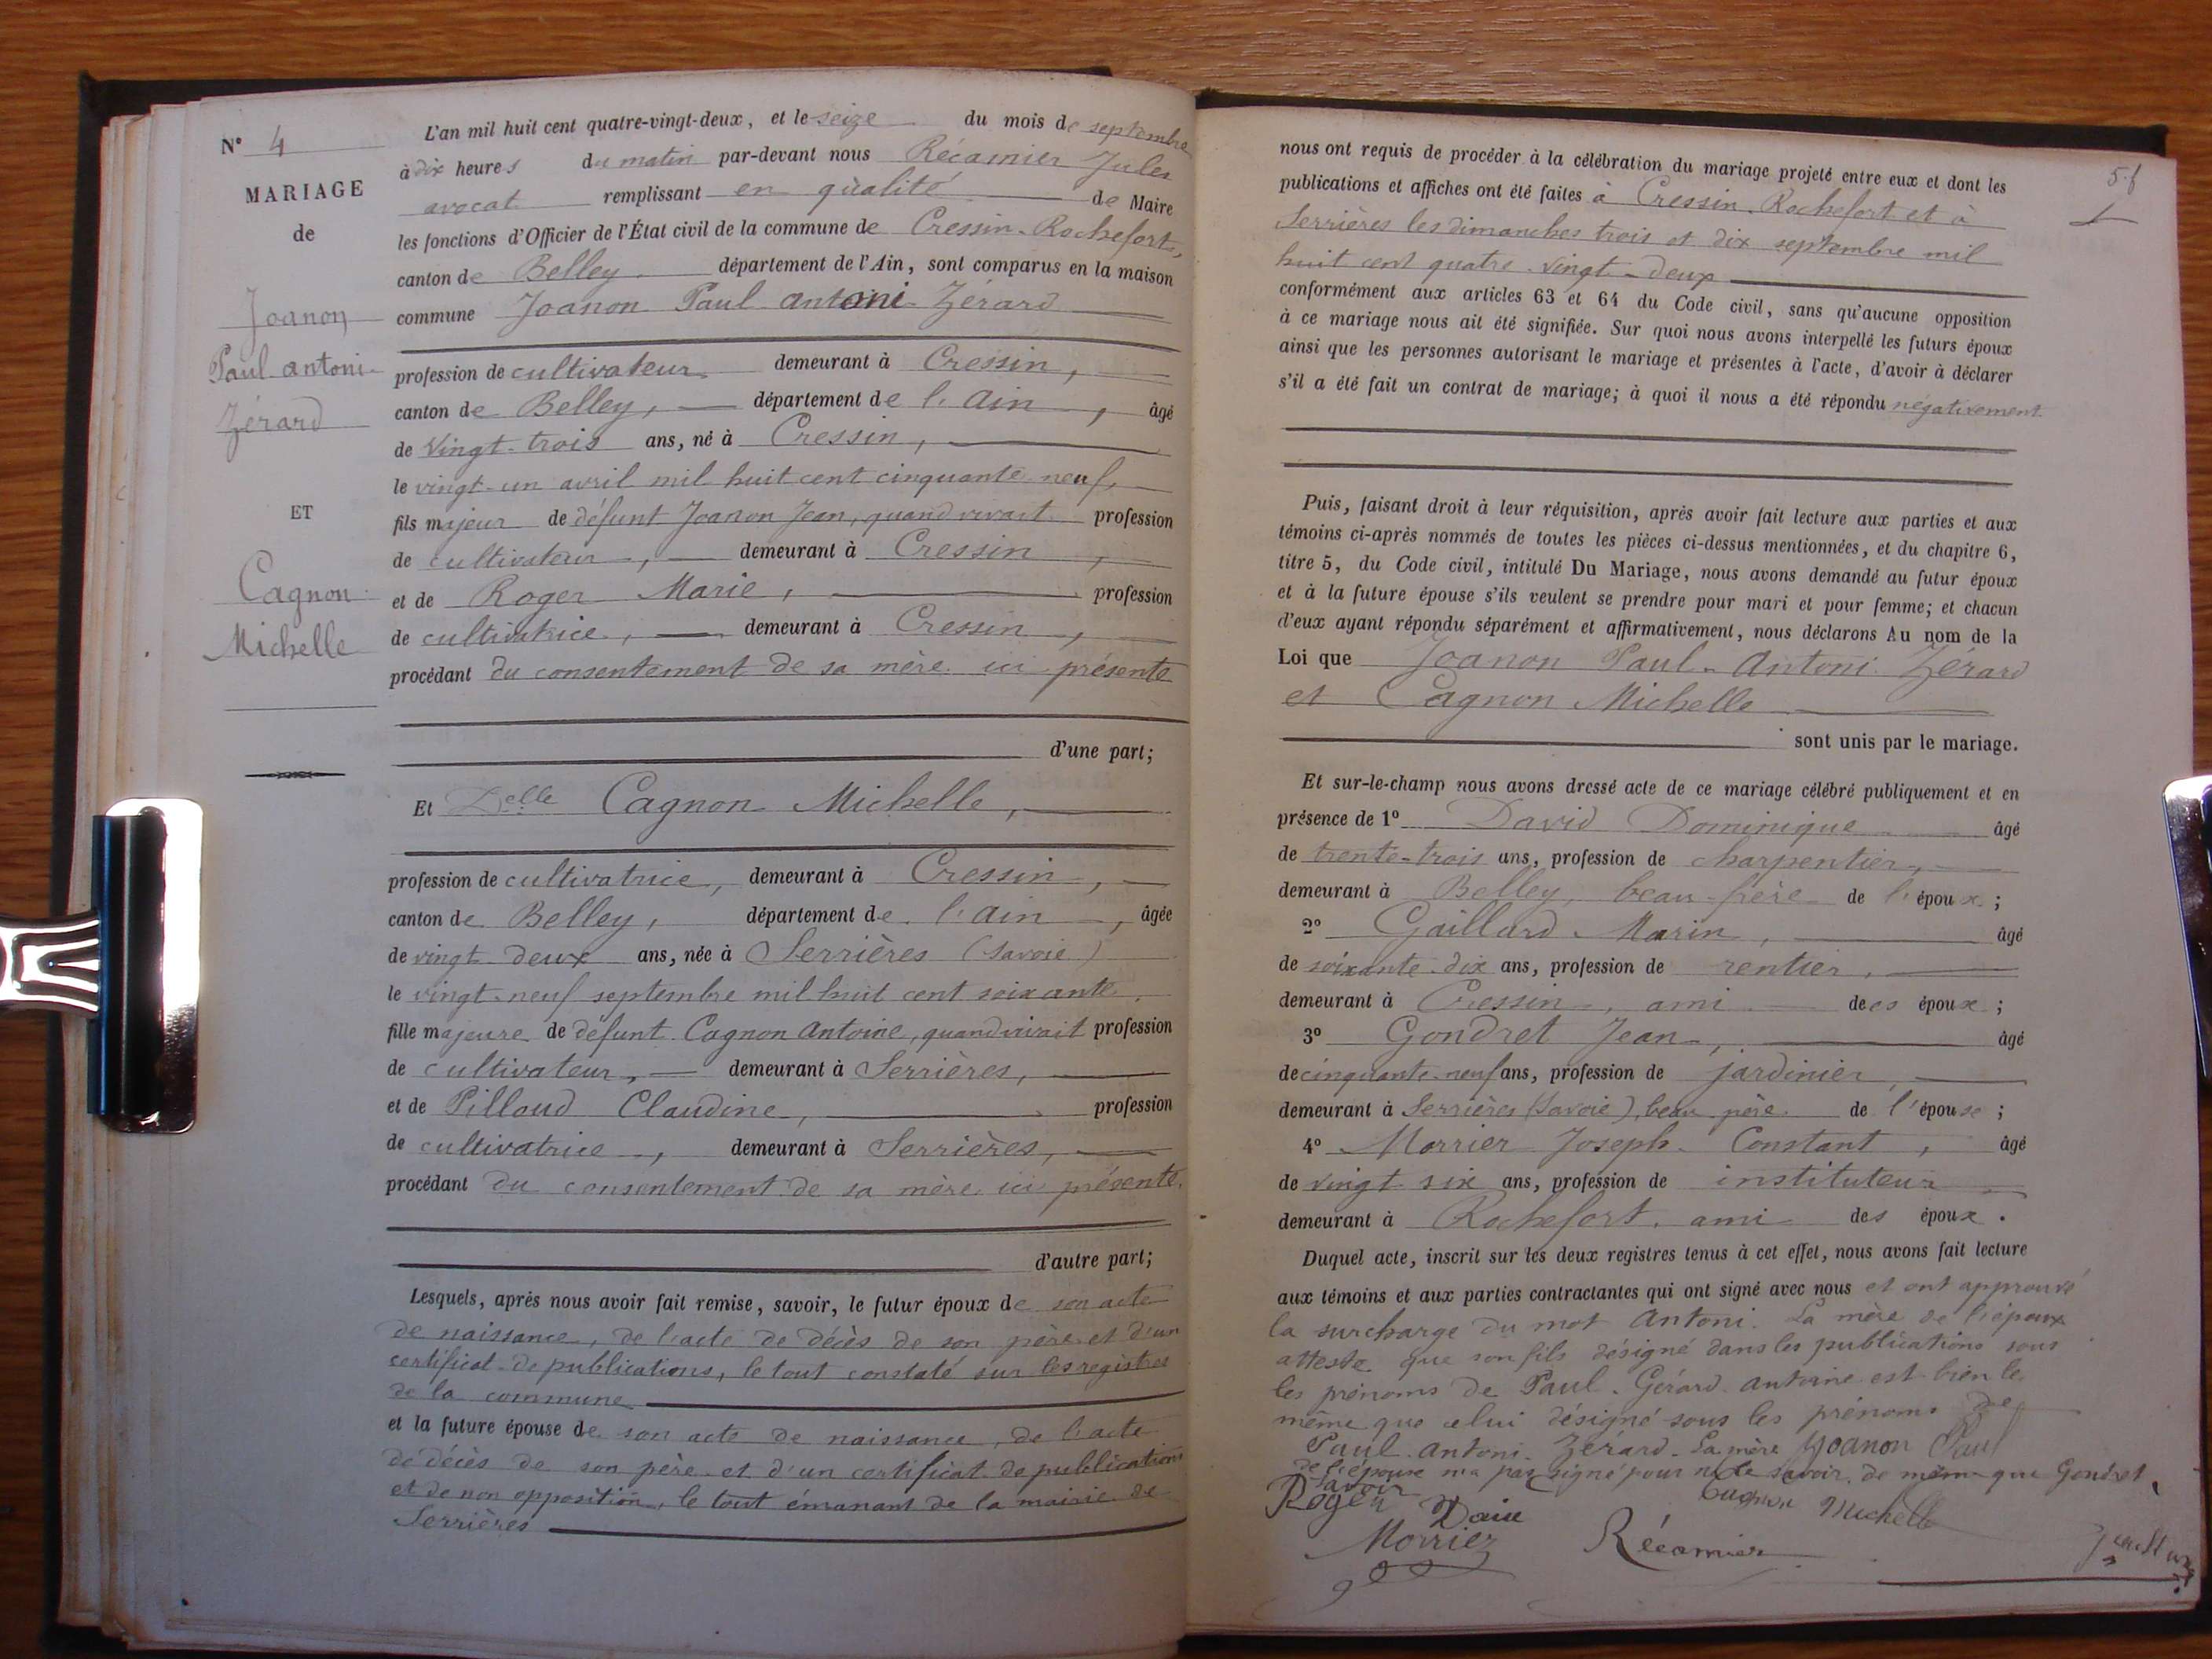 N° 4
MARIAGE
de
Joanon
Paul antoni
Zérard
ET
Cagnon
Michelle
L'an mil huit cent quatre-vingt-deux, et le seize du mois de septembre
à dix heures du matin par-devant nous Récamier Jules
avocat remplissant en qualité de Maire
les fonctions d'Officier de l'État civil de la commune de Cressin-Rochefort,
canton de Belley département de l'Ain, sont comparus en la maison
commune Joanon Paul antoni Zérard
profession de cultivateur demeurant à Cressin,
canton de Belley, département de l'Ain, âgé
de vingt-trois ans, né à Cressin,
le vingt-un avril mil huit cent cinquante neuf,
fils majeur de défunt Joanon Jean, quand vivait profession
de cultivateur, demeurant à Cressin,
et de Roger Marie, profession
de cultivatrice, demeurant à Cressin,
procédant du consentement de sa mère ici présente
d'une part;
Et Delle Cagnon Michelle,
profession de cultivatrice, demeurant à Cressin,
canton de Belley, département de l'Ain, âgée
de vingt deux ans, née à Serrières (Savoie)
le vingt-neuf septembre mil huit cent soixante,
fille majeure de défunt Cagnon Antoine, quand vivait profession
de cultivateur, demeurant à Serrières,
et de Pilloud Claudine, profession
de cultivatrice, demeurant à Serrières,
procédant du consentement de sa mère ici présente,
d'autre part;
Lesquels, après nous avoir fait remise, savoir, le futur époux de son acte
de naissance, de l'acte de décès de son père et d'un
certificat de publications, le tout constaté sur les registres
de la commune
et la future épouse de son acte de naissance, de l'acte
de décès de son père et d'un certificat de publications
et de non opposition, le tout émanant de la mairie de
Serrières
5.f
nous ont requis de procéder à la célébration du mariage projeté entre eux et dont les
publications et affiches ont été faites à Cressin-Rochefort et à
Serrières les dimanches trois et dix septembre mil
huit cent quatre-vingt-deux
conformément aux articles 63 et 64 du Code civil, sans qu'aucune opposition
à ce mariage nous ait été signifiée. Sur quoi nous avons interpellé les futurs époux
ainsi que les personnes autorisant le mariage et présentes à l'acte, d'avoir à déclarer
s'il a été fait un contrat de mariage; à quoi il nous a été répondu négativement.
Puis, faisant droit à leur réquisition, après avoir fait lecture aux parties et aux
témoins ci-après nommés de toutes les pièces ci-dessus mentionnées, et du chapitre 6,
titre 5, du Code civil, intitulé Du Mariage, nous avons demandé au futur époux
et à la future épouse s'ils veulent se prendre pour mari et pour femme; et chacun
d'eux ayant répondu séparément et affirmativement, nous déclarons Au nom de la
Loi que Joanon Paul-Antoni Zérard
et Cagnon Michelle
sont unis par le mariage.
Et sur-le-champ nous avons dressé acte de ce mariage célébré publiquement et en
présence de 1° David Dominique âgé
de trente-trois ans, profession de charpentier,
demeurant à Belley, beau-frère de l'époux;
2° Gaillard Marin, âgé
de soixante-dix ans, profession de rentier,
demeurant à Cressin, ami des époux;
3° Gondret Jean, âgé
de cinquante-neuf ans, profession de jardinier,
demeurant à Serrières (Savoie), beau-père de l'épouse;
4° Morrier Joseph Constant, âgé
de vingt six ans, profession de instituteur
demeurant à Rochefort, ami des époux.
Duquel acte, inscrit sur les deux registres tenus à cet effet, nous avons fait lecture
aux témoins et aux parties contractantes qui ont signé avec nous et ont approuvé
la surcharge du mot Antoni. La mère de l'époux
atteste que son fils désigné dans les publications sous
les prénoms de Paul Gérard antoine est bien le
même que celui désigné sous les prénoms de
Paul antoni Zérard. La mère Joanon Paul
de l'épouse n'a pas signé pour ne le savoir, de même que Gondret
savoir
Roger David Cagnon Michelle
Morrier Récamier